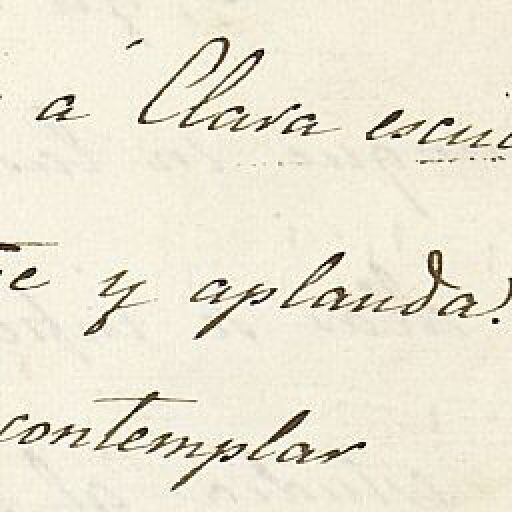 á Clara escu
te y aplauda!
contemplar